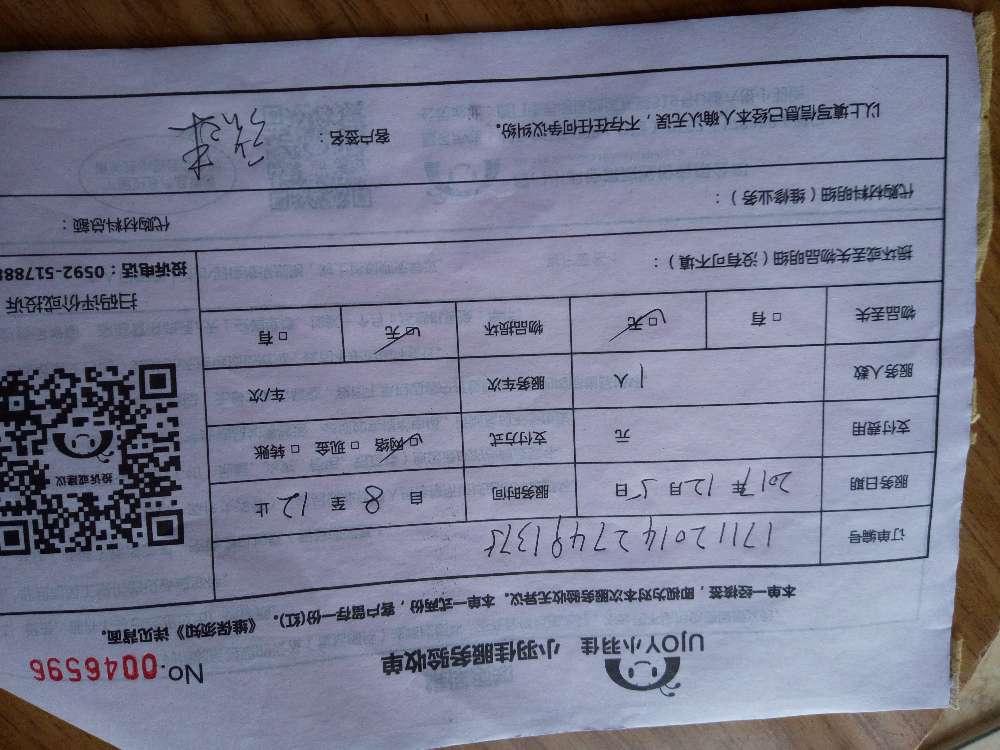 UJOY小羽佳 小羽佳服务验收单 No.0046596
本单一经核签，即视为对本次服务验收无异议。本单一式两份，客户留存一份(红)。《维保须知》详见背面。
订单编号 1711201427491375
服务日期 2017年12月5日 服务时间 自 8 至 12 止
支付费用 元 支付方式 ☑网络 □现金 □转账
服务人数 1人 服务车次 车/次
物品丢失 □有 ☑无 物品损坏 ☑无 □有
投诉或建议
扫码评价或投诉
投诉电话：0592-51788
损坏或丢失物品明细（没有可不填）：
代购材料明细（维修业务）： 代购材料总额：
以上填写信息已经本人确认无误，不存在任何争议纠纷。 客户签名：